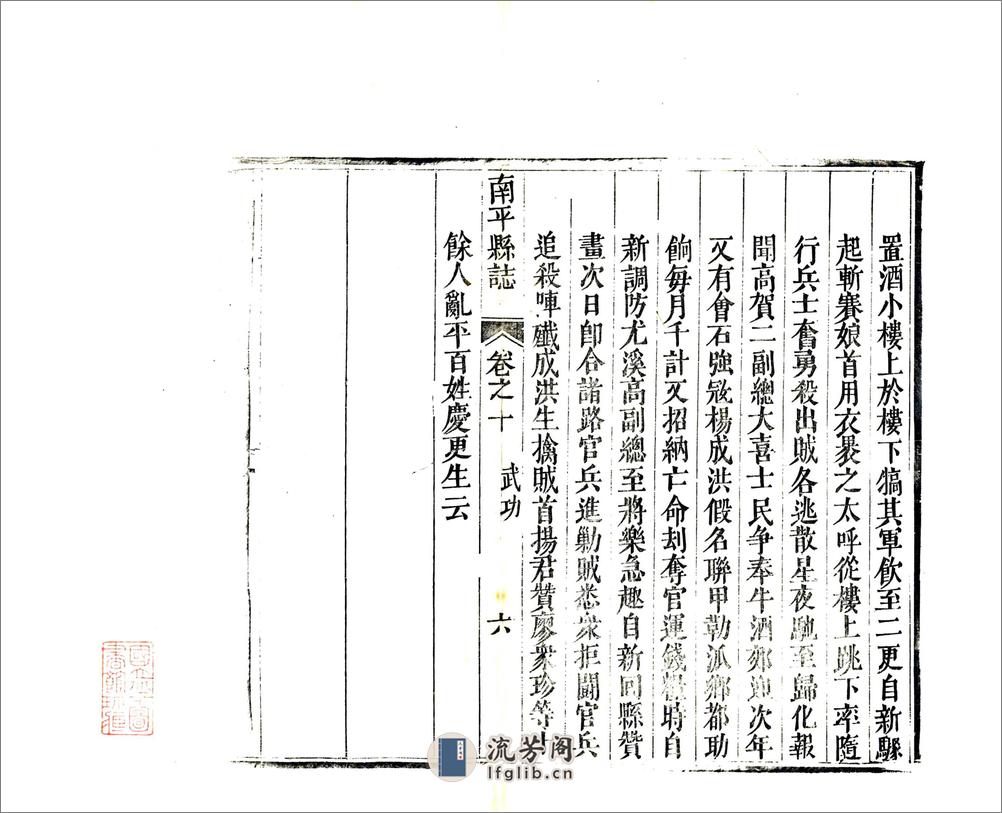 置酒小樓上於樓下犒其軍飲至二更自新驟
起斬賽娘首用衣裹之大呼從樓上跳下率隨
行兵士奮勇殺出賊各逃散星夜馳至歸化報
聞高賀二副總大喜士民争奉牛酒郊迎次年
又有會石強寇楊成洪假名聯甲勒派鄉都助
餉每月千計又招納亡命刦奪官運錢糧時自
新調防尤溪高副總至將樂急趣自新回縣贊
畫次日卽合諸路官兵進勦賊悉衆拒鬪官兵
追殺陣殲成洪生擒賊首揚君贊廖衆珍等
南平縣誌
卷之十
武功
六
餘人亂平百姓慶更生云
流芳阁
lfglib.cn